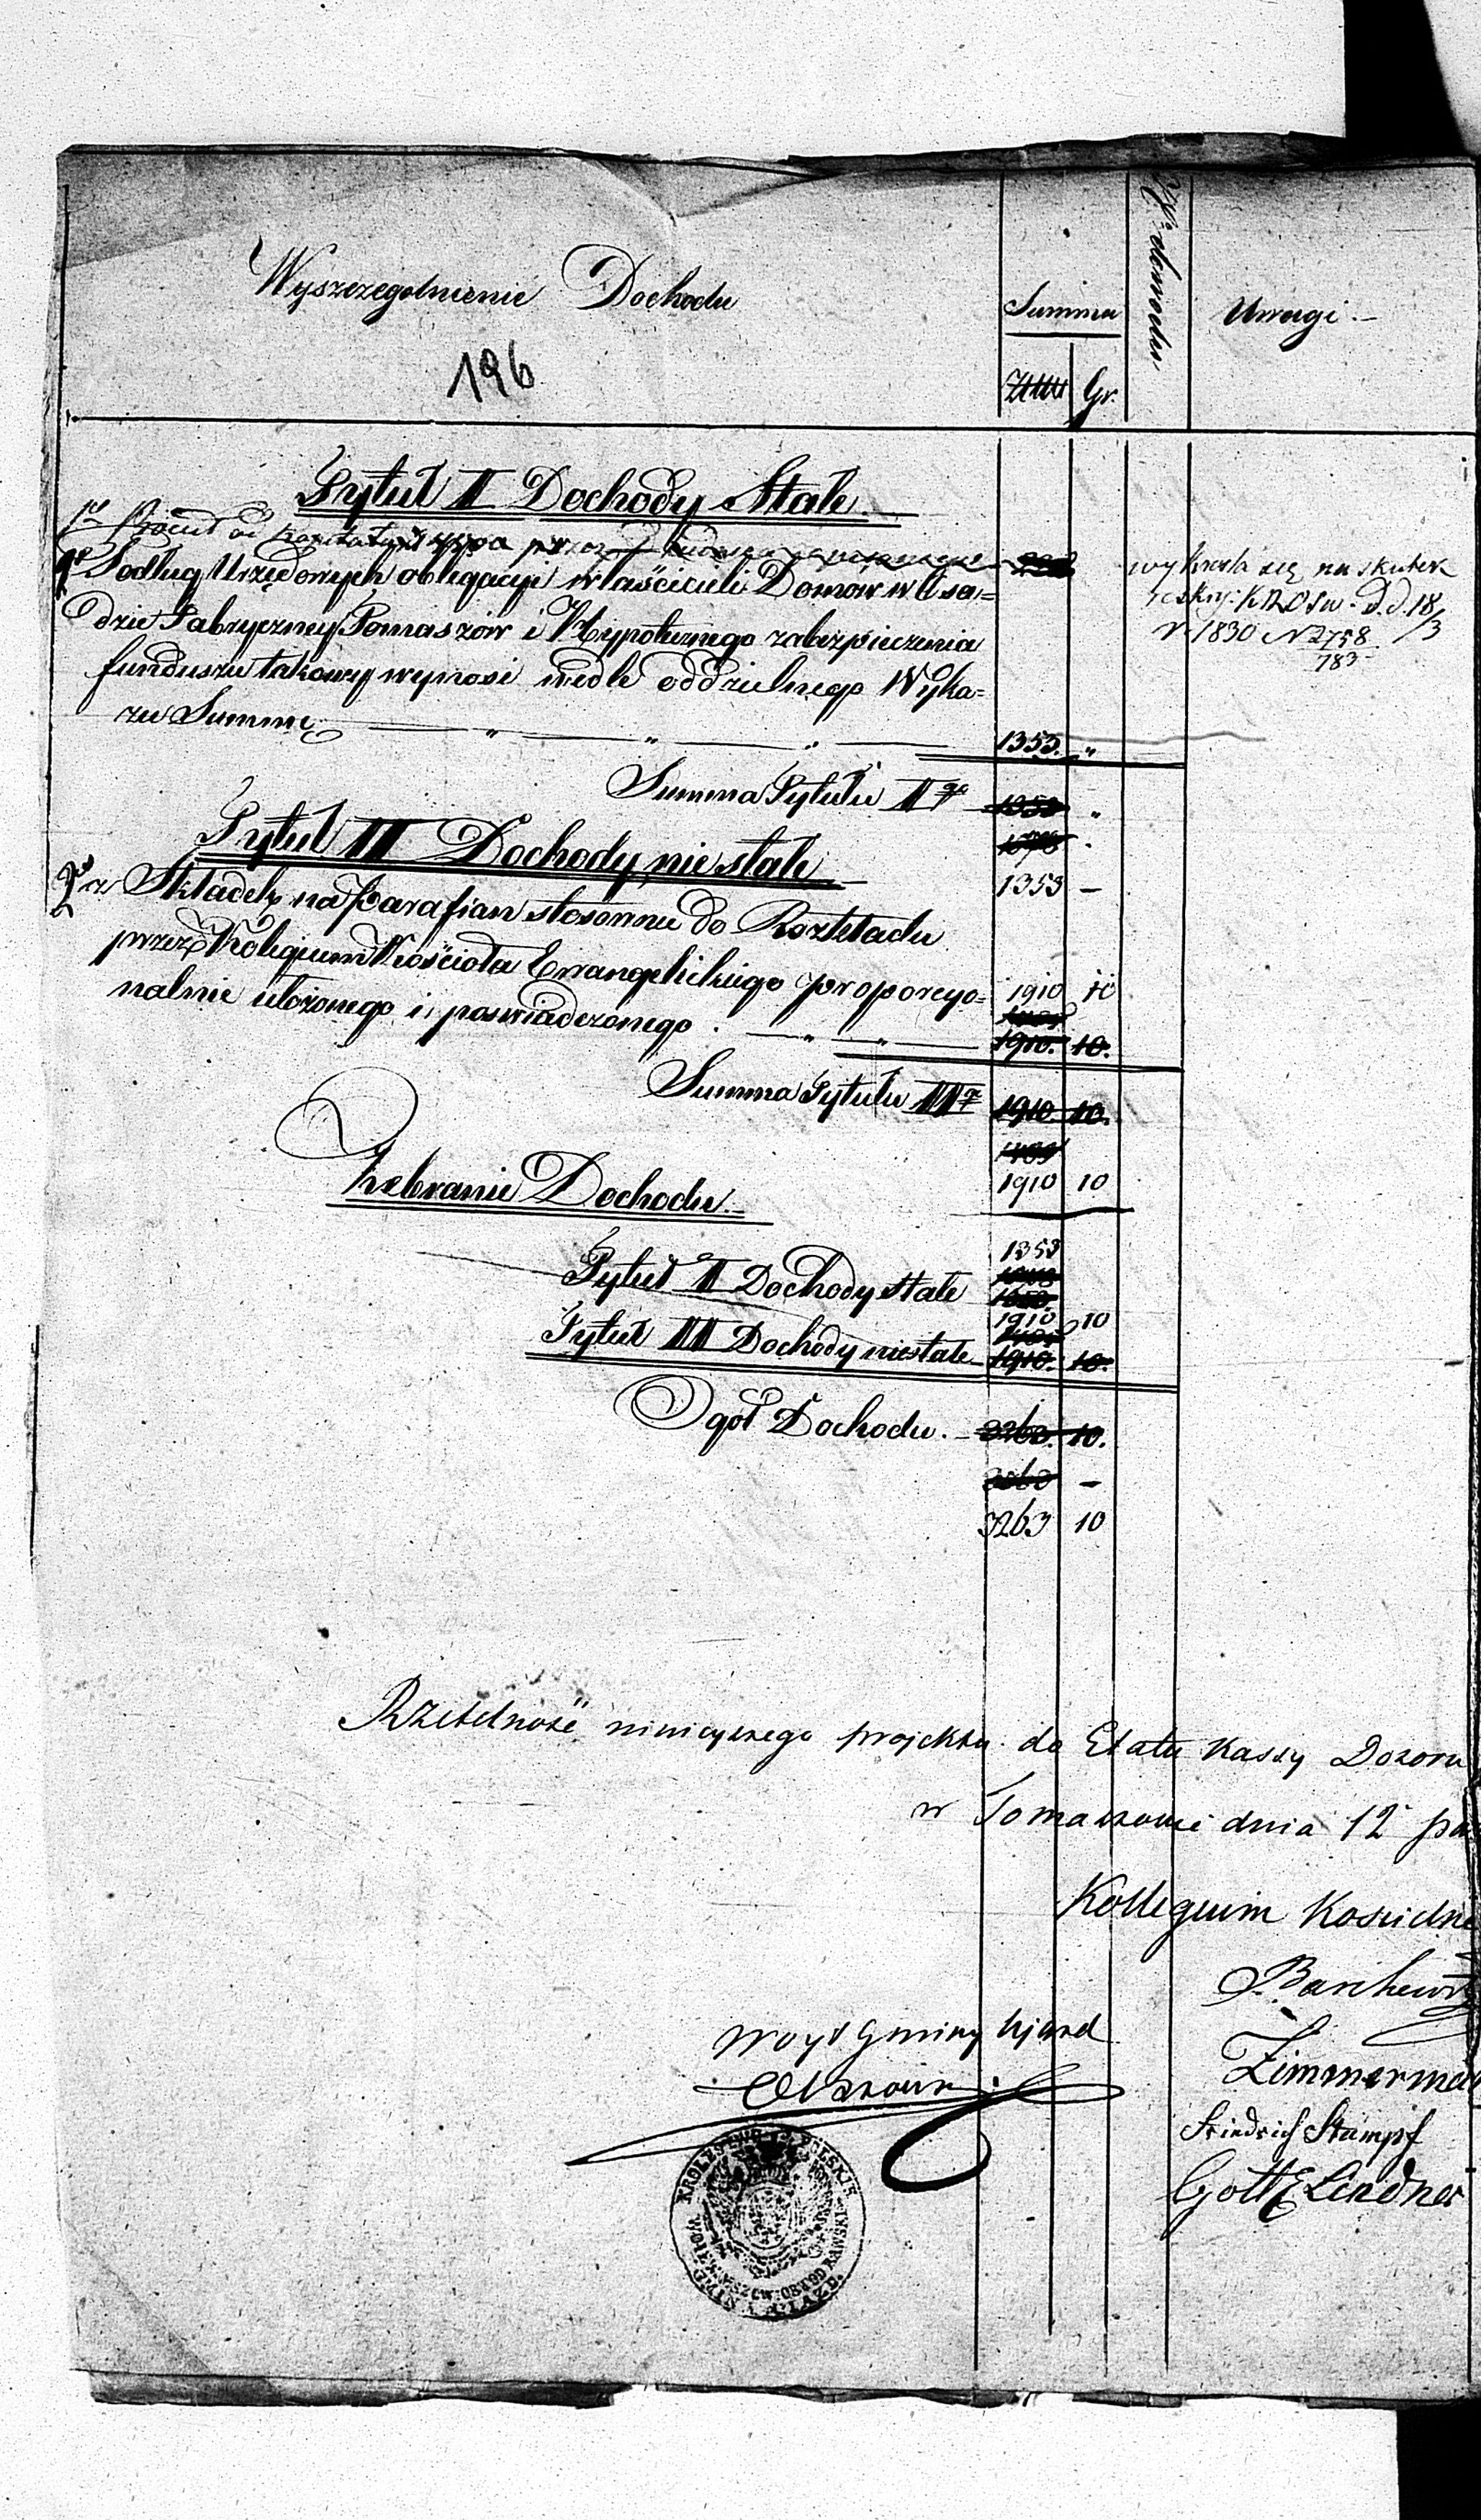 Wyszczegolnienie Dochodu
Summa
Gr.
dowodu
Uwagi. –
196
Tytuł II Dochody Stałe
1º Procent od
1º Podług Urzędowych obligacyi właścicieli Domow w Osa=
dzie Fabryczney Tomaszów i Hypotecznego zabezpieczenia
funduszu takowy wynosi wedle oddzielnego Wyka=
zu Summę — „ — „ — „ — 1353. „
wykreśla się na skutek
reskryp: KRDSW. D.d. 18/3
r. 1830 N 2758
783
Summa Tytułu IIgo 1353 „
1353 –
Tytuł III Dochody niestałe
2º z Składek na Parafian stosownie do Rozkładu
przez Kolegium Kościoła Ewangelickiego proporcyo=
nalnie ułożonego i poswiadczonego . — „ — „ —
1910 10
1910. 10.
Summa Tytułu III 1910 10.
1910 10
Zebranie Dochodu.
1353
Tytuł II Dochody Stałe 1353.
1910 10
Tytuł III Dochody niestałe 1910. 10.
Ogół Dochodu. – 3263. 10.
–
3263 10
Rzetelność ninieyszego projektu do Etatu Kassy Dozoru
w Tomaszowie dnia 12 pa
Kollegium Kościelne
Zimmerman
Friedrich Stampf
Gottl Lindner
Woyt Gminy Ujazd
KROLESTWO POLSKIE
OBWOD RAWSKI
GMINA UIAZD